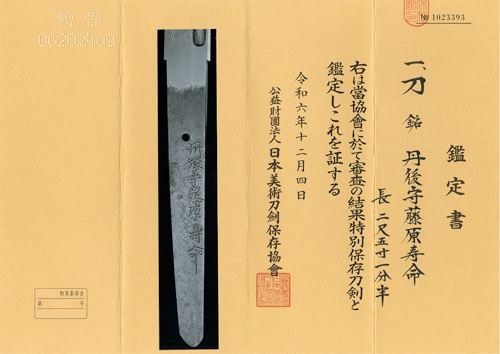 № 1023393
鑑定書
一、刀 銘 丹後守藤原寿命
長 二尺五寸一分半
右は當協會に於て審査の結果特別保存刀剣と
鑑定しこれを証する
令和六年十二月四日
公益財團法人 日本美術刀劍保存協會
丹後守藤原寿命
第 号